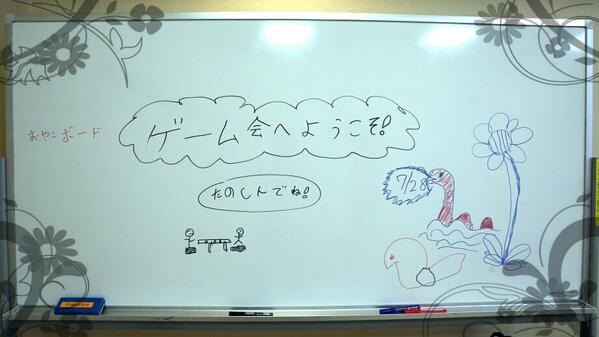 ゲーム会へようこそ!
たのしんでね!
おやこボード
7/28